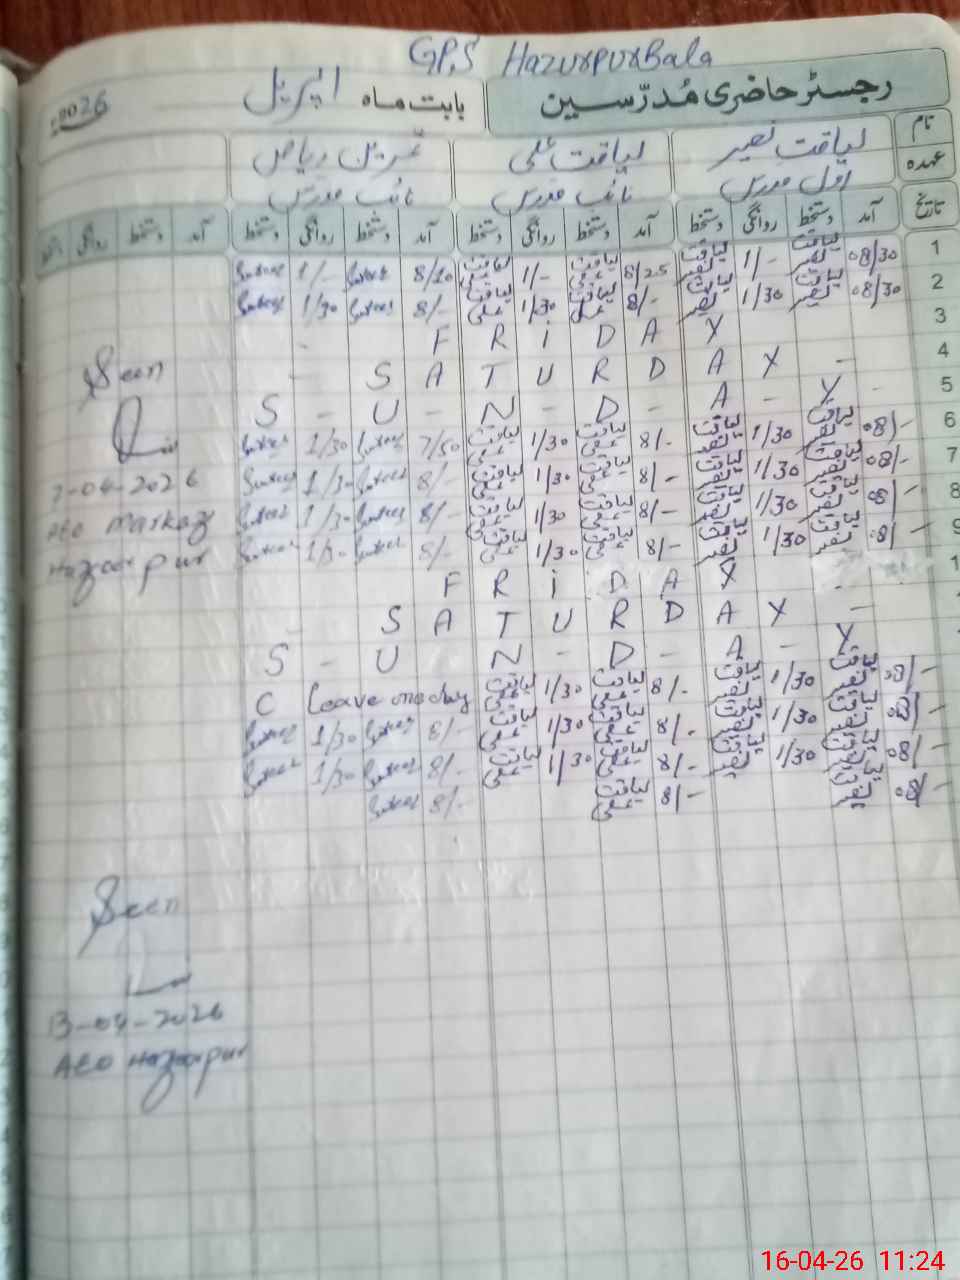 GPS HazurpurBala
رجسٹر حاضری مُدرّسین بابت ماہ اپریل 2026
نام لیاقت نصیر لیاقت علی عمرین ریاض
عہدہ اول مدرس نائب مدرس نائب مدرس
تاریخ آمد دستخط روانگی دستخط آمد دستخط روانگی دستخط آمد دستخط روانگی دستخط آمد دستخط روانگی
1 08/30 لیاقت نصیر 1/- لیاقت نصیر 8/25 لیاقت علی 1/- لیاقت علی 1/-
2 08/30 لیاقت نصیر 1/30 لیاقت نصیر 8/- لیاقت علی 1/30 لیاقت علی 8/- 1/30
3 F R i D A Y
4 S A T U R D A Y -
5 S - U - N - D - A - Y -
6 08/- لیاقت نصیر 1/30 لیاقت نصیر 8/- لیاقت علی 1/30 لیاقت علی 7/50 1/30
7 08/- لیاقت نصیر 1/30 لیاقت نصیر 8/- لیاقت علی 1/30 لیاقت علی 8/- 1/30
8 08/- لیاقت نصیر 1/30 لیاقت نصیر 8/- لیاقت علی 1/30 لیاقت علی 8/- 1/30
9 08/- لیاقت نصیر 1/30 لیاقت نصیر 8/- لیاقت علی 1/30 لیاقت علی 8/- 1/30
F R i D A Y
S A T U R D A Y -
S - U N - D - A - Y
08/- لیاقت نصیر 1/30 لیاقت نصیر 8/- لیاقت علی 1/30 لیاقت علی C leave one day
08/- لیاقت نصیر 1/30 لیاقت نصیر 8/- لیاقت علی 1/30 لیاقت علی 8/- 1/30
08/- لیاقت نصیر 1/30 لیاقت نصیر 8/- لیاقت علی 1/30 لیاقت علی 8/- 1/30
08/- لیاقت نصیر 8/- لیاقت علی 8/-
Seen
7-04-2026
AEO Markaz
Hazoor pur
Seen
13-04-2026
AEO Hazoorpur
16-04-26 11:24